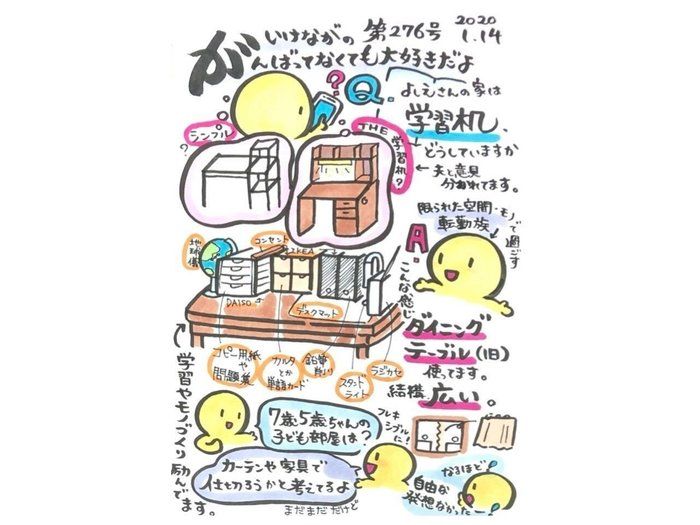 いけながの 第276号 2020
1.14
がんばってなくても大好きだよ
?
Q. よしえさんの家は
学習机、
どうしていますか
←夫と意見
分かれてます。
?
シンプル
THE 学習机?
限られた空間・モノで過ごす
転勤族
A.
こんな感じ
地球儀
コンセント
IKEA
DAISO
デスクマット
コピー用紙や
問題集
カルタ
とか
単語カード
鉛筆
削り
スタンド
ライト
ラジカセ
ダイニング
テーブル(旧)
使ってます。
結構、広い。
←学習やモノづくり励んでます。
7歳5歳ちゃんの
子ども部屋は?
フレキ
シブルに
カーテンや家具で
仕切ろうかと考えてるよ
まだまだだけど
なるほど
自由な
発想なかったー